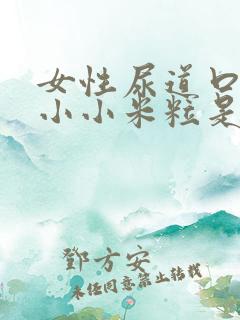 女性尿道口
小小米粒是
鄧方安
未经同意禁止转载